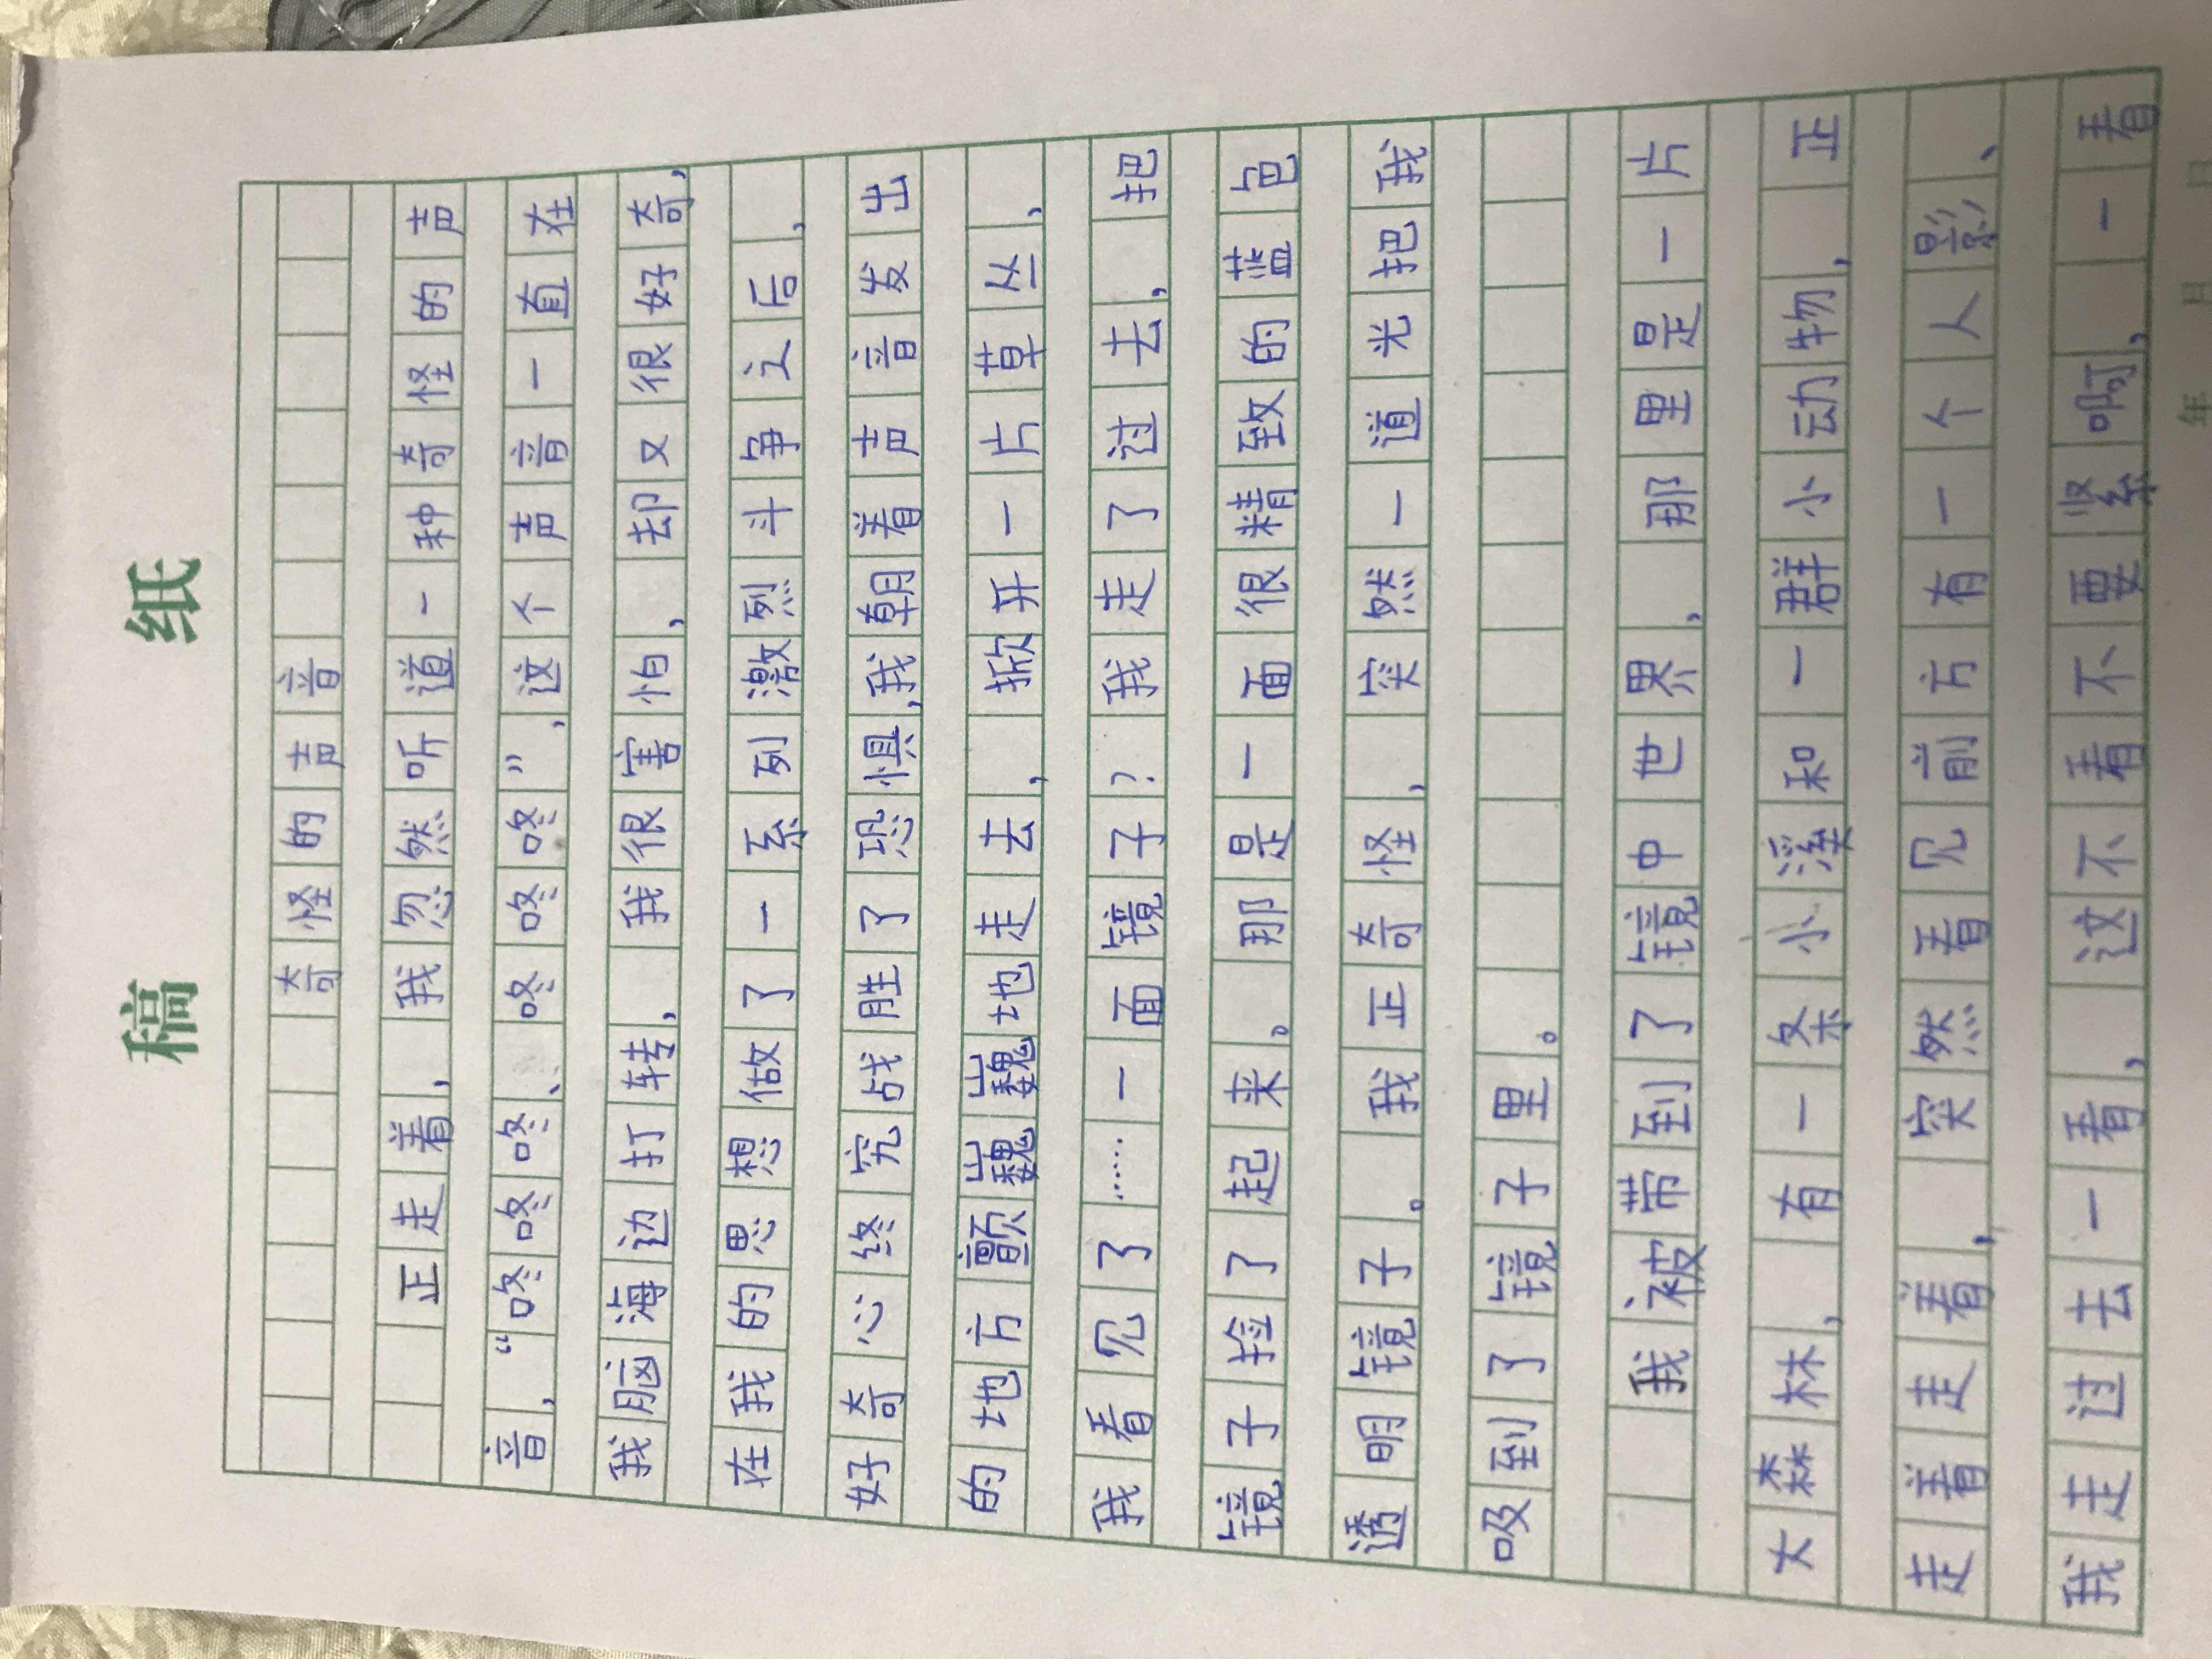 稿 纸
奇怪的声音
正走着，我忽然听道一种奇怪的声
音，“咚咚咚、咚咚咚”，这个声音一直在
我脑海边打转，我很害怕，却又很好奇，
在我的思想做了一系列激烈斗争之后，
好奇心终究战胜了恐惧，我朝着声音发出
的地方颤巍巍地走去，掀开一片草丛，
我看见了……一面镜子？我走了过去，把
镜子捡了起来。那是一面很精致的蓝色
透明镜子。我正奇怪，突然一道光把我
吸到了镜子里。
我被带到了镜中世界，那里是一片
大森林，有一条小溪和一群小动物，正
走着走着，突然看见前方有一个人影、
我走过去一看，这不看不要紧啊，一看
年 月 日